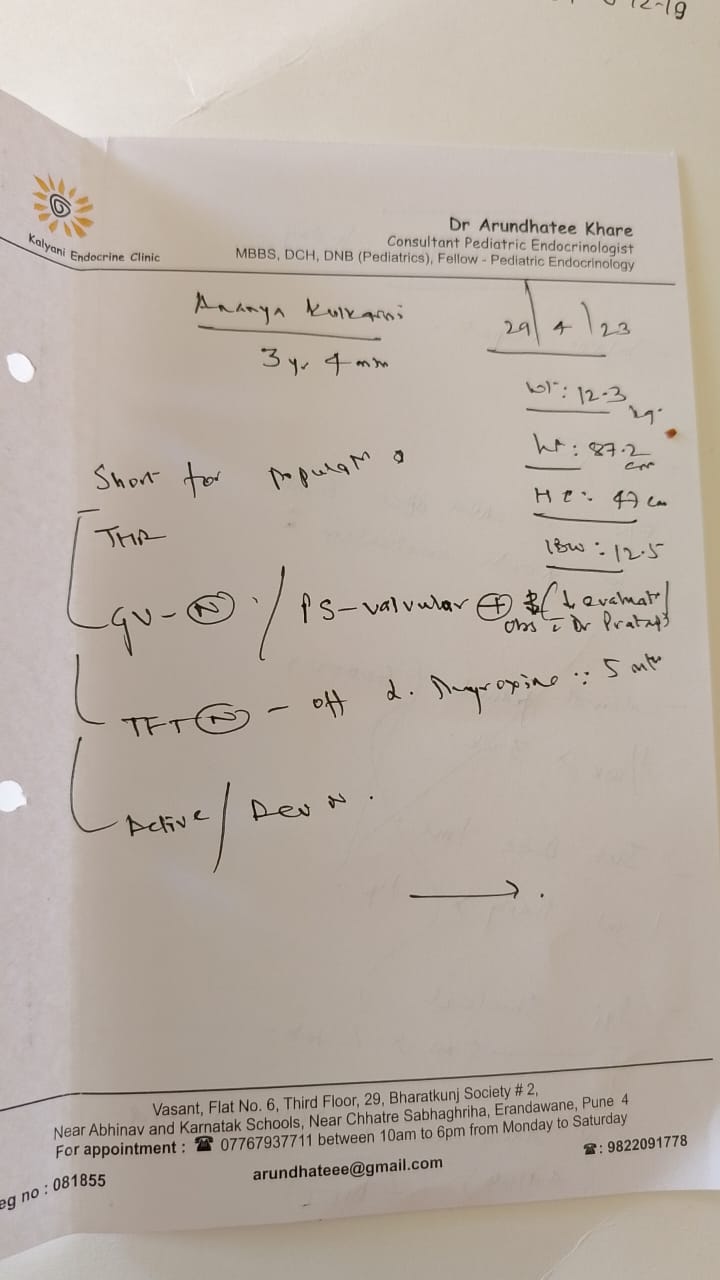 12-19
Kalyani Endocrine Clinic
Dr Arundhatee Khare
Consultant Pediatric Endocrinologist
MBBS, DCH, DNB (Pediatrics), Fellow - Pediatric Endocrinology
Ananya Kulkarni
29/4/23
3 yr 4 mn
wt: 12.3 kg
ht: 87.2 cm
HC: 47 cm
IBW: 12.5
Short for population
GV - N / PS - valvular + evaluate
obs c Dr Pratap's
TFT N - off d. Thyroxine :: 5 mth
Active / Dev N.
Vasant, Flat No. 6, Third Floor, 29, Bharatkunj Society # 2,
Near Abhinav and Karnatak Schools, Near Chhatre Sabhaghriha, Erandawane, Pune 4
For appointment : ☎ 07767937711 between 10am to 6pm from Monday to Saturday
☎: 9822091778
arundhateee@gmail.com
eg no : 081855